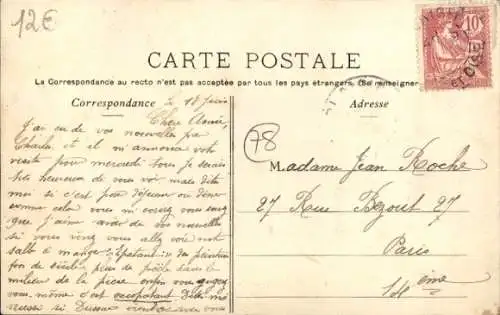 12€
10
OISE
CARTE POSTALE
La Correspondance au recto n'est pas acceptée par tous les pays étrangers. (Se renseigner
Correspondance
Adresse
le 18 Juin
Chère Amie,
J'ai eu de vos nouvelles par
Charles et il m'annonce votre
visite pour mercredi. Vous je serais
très heureux de vous voir mais dites
moi si c'est pour déjeuner ou dîner
comme cela vous
que j'aime avoir de vos nouvelles
si vous vous allez voir notre
salle à manger. Epatant: des
de plus de poêle dans le
milieu de la pièce enfin vous
vous même c'est Dites moi
aussi si vous
78
Madame Jean Roche
27 Rue Bezout 27
Paris
14 ème